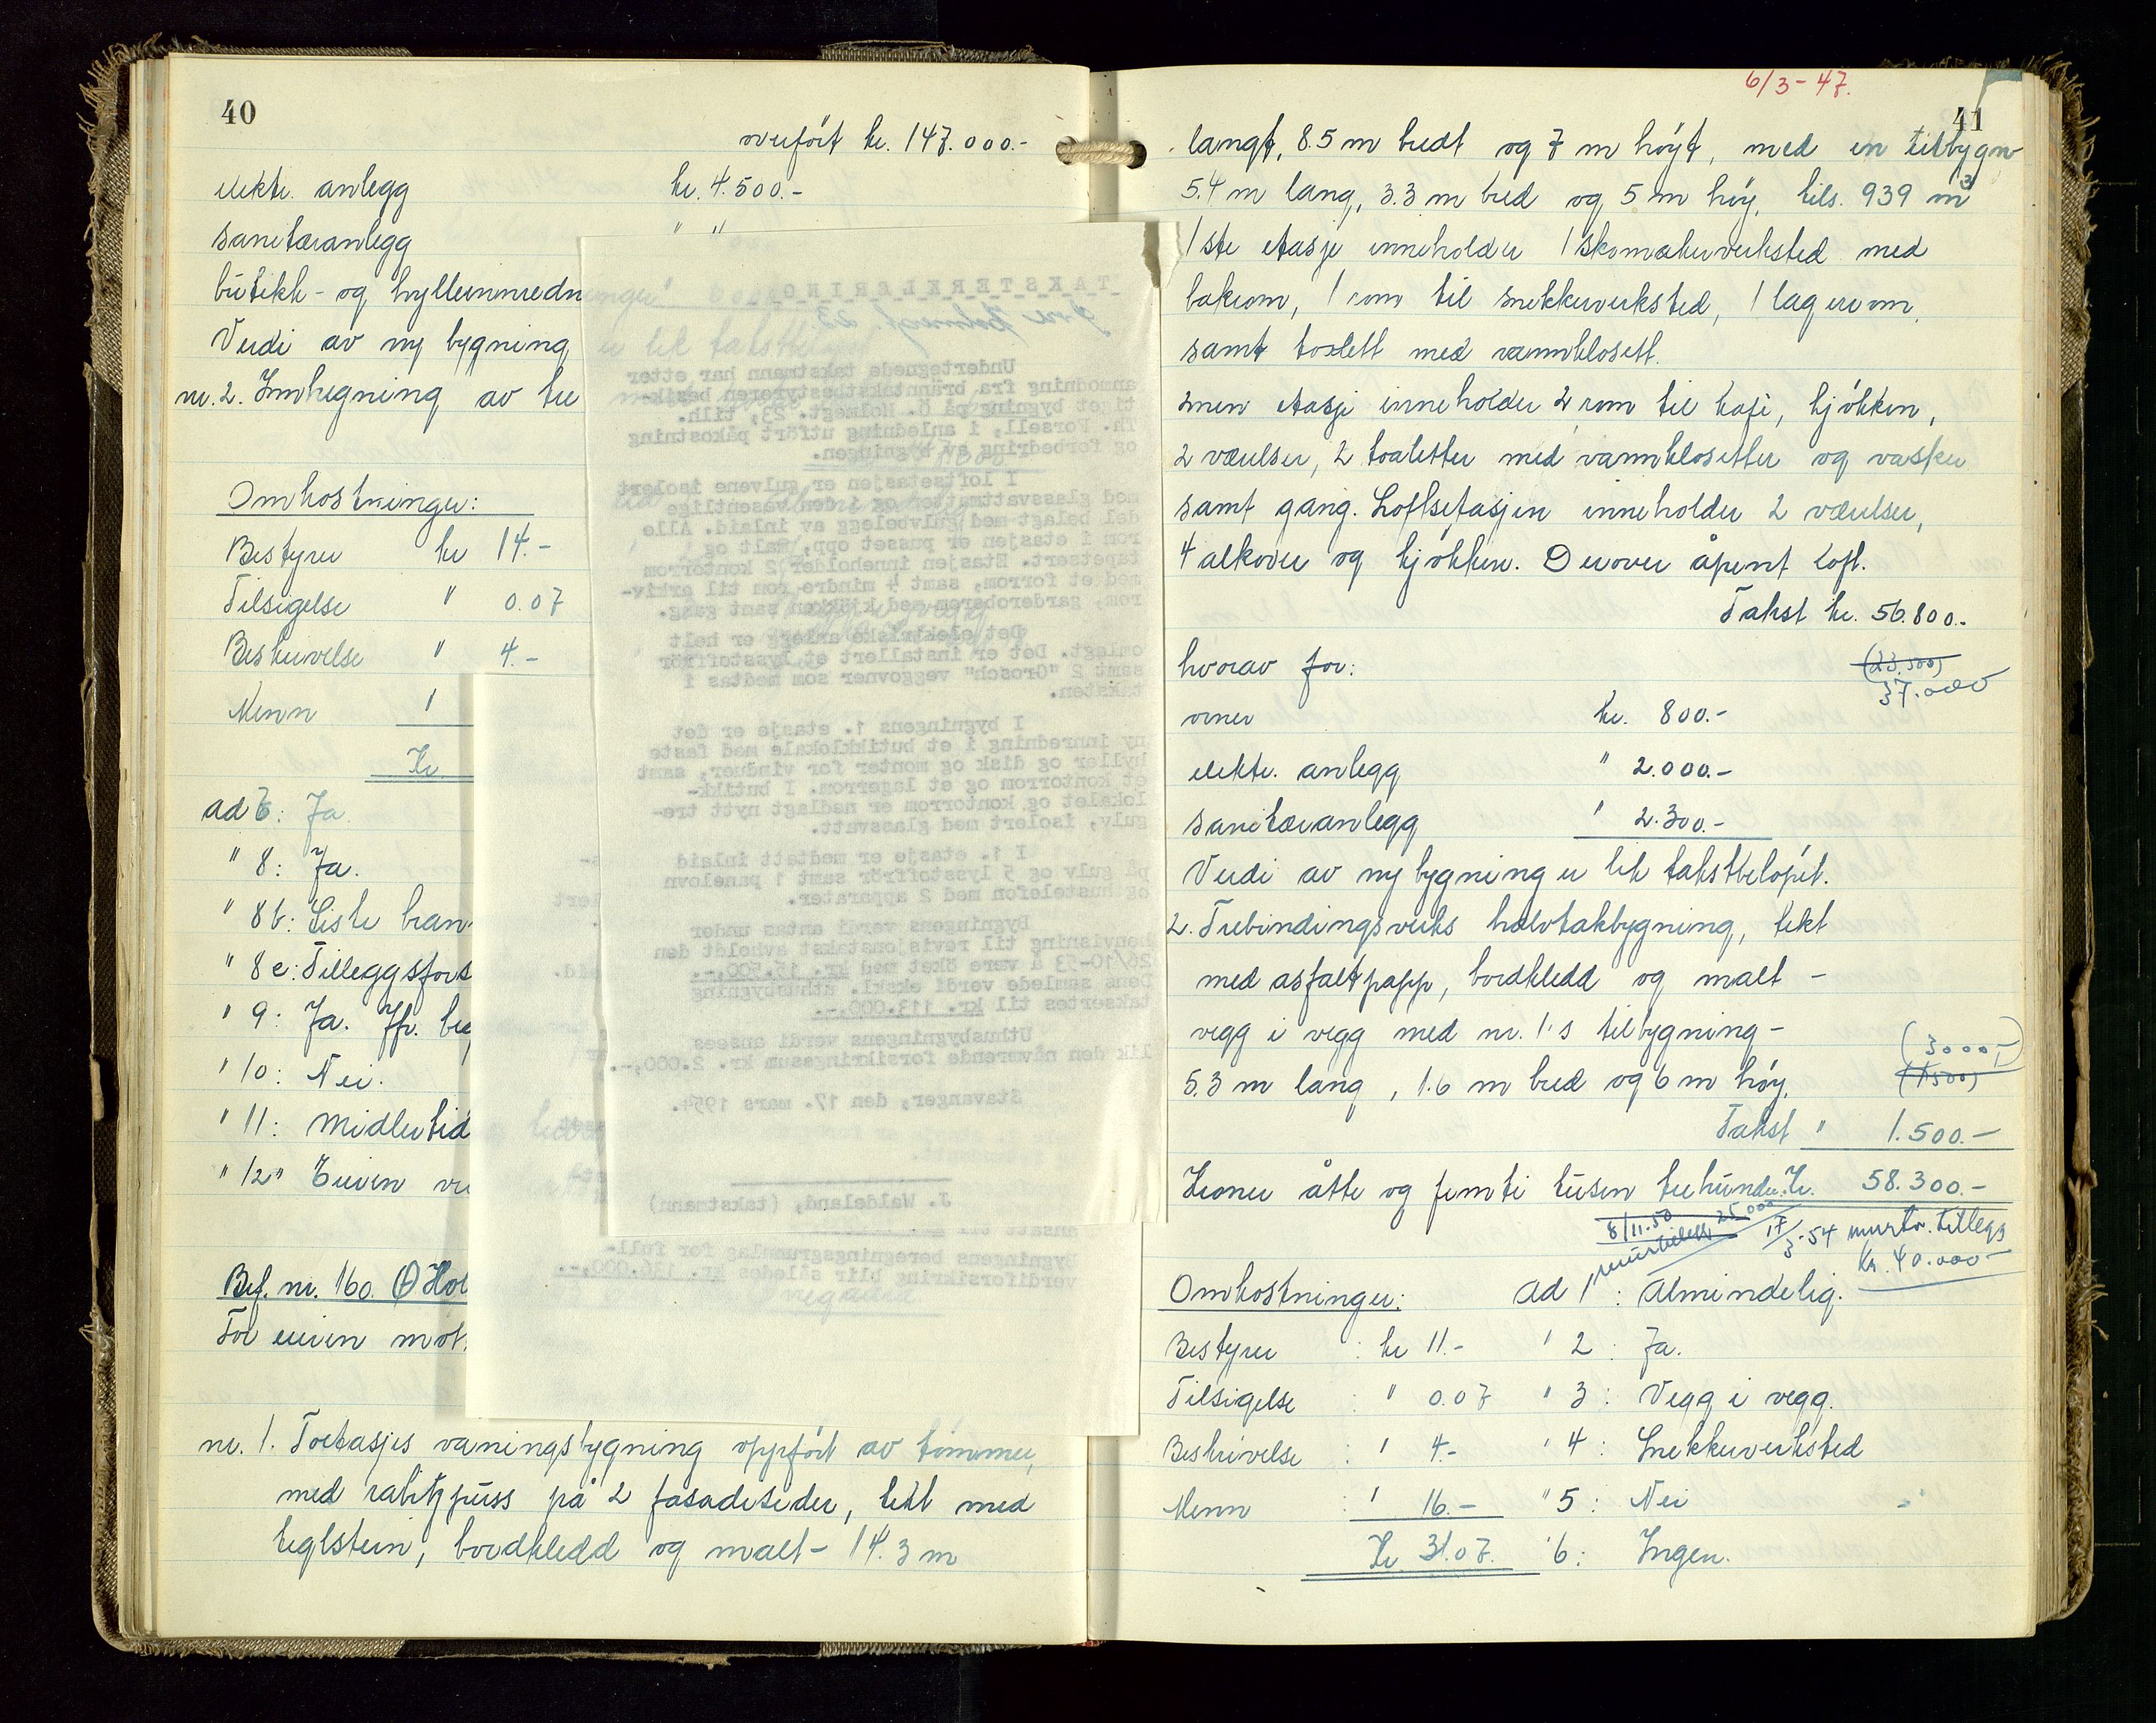 40
overført kr. 147.000.-
elektr. anlegg kr. 4.500.-
sanitæranlegg " "
butikk- og hylleinnredn
Verdi av ny bygning
nr. 2. Innhegning av tre
Omkostninger:
Bestyrer kr 14.-
Tilsigelse " 0.07
Beskrivelse " 4.-
Menn "
Kr
ad 6: Ja
" 8: Ja.
" 8b: Siste bran
" 8c: Tilleggsfors
" 9: Ja. Jfr. be
" 10: Nei.
" 11: Midlertid
" 12" Eieren
Bef. nr. 160. Ø Hol
For eieren møt.
nr. 1. Toetasjes våningsbygning oppført av tømmer,
med rabitzpuss på 2 fasadesider, tekt med
teglstein, bordkledd og malt - 14.3 m
TAKSTERKLÆRING
Undertegnede takstmann har etter
anmodning fra branntakstbestyreren besik-
tiget bygning på Ø. Holmegt. 23, tilh.
Th. Forsell, i anledning utført påkostning
og forbedring av bygningen.
I loftsetasjen er gulvene isolert
med glassvattmatter og i den vesentlige
del belagt med gulvbelegg av inlaid. Alle
rom i etasjen er pusset opp, malt og
tapetsert. Etasjen inneholder 2 kontorrom
med et forrom, samt 4 mindre rom til arkiv-
rom, garderoberom med kjøkken samt gang.
Det elektriske anlegg er helt
omlagt. Det er installert et lysstoffrör
samt 2 "Grosch" veggovner som medtas i
taksten.
I bygningens 1. etasje er det
ny innredning i et butikklokale med faste
hyller og disk og monter for vinduer, samt
et kontorrom og et lagerrom. I butikk-
lokalet og kontorrom er nedlagt nytt tre-
gulv, isolert med glassvatt.
I 1. etasje er medtatt inlaid
på gulv og 5 lysstoffrör samt 1 panelovn
og hustelefon med 2 apparater.
Bygningens verdi antas under
henvisning til revisjonstakst avholdt den
26/10-53 å være öket med kr. 15.500,-.
Dens samlede verdi ekskl. uthusbygning
taksertes til kr. 113.000,-.
Uthusbygningens verdi ansees
lik den nåværende forsikringssum kr. 2.000,-.
Stavanger, den 17. mars 1954.
J. Waldeland, (takstmann)
ansatt til
Bygningens beregningsgrunnlag for full-
verdiforsikring blir således kr. 136.000,-.
6/3-47.
41
langt, 8.5 m bredt og 7 m høyt, med en tilbygn
5.4 m lang, 3.3 m bred og 5 m høy, tils. 939 m³
1ste etasje inneholder 1 skomakerverksted med
bakrom, 1 rom til snekkerverksted, 1 lagerrom,
samt toalett med vannklosett.
2nen etasje inneholder 2 rom til kafe, kjøkken,
2 værelser, 2 toaletter med vannklosetter og vasker
samt gang. Loftsetasjen inneholder 2 værelser,
4 alkover og kjøkken. Derover åpent loft.
Takst kr. 56.800.-
hvorav for: (23.500)
37.000
ovner kr. 800.-
elektr. anlegg " 2.000.-
sanitæranlegg " 2.300.-
Verdi av ny bygning er lik takstbeløpet.
2. Trebindingsverks halvtakbygning, tekt
med asfaltpapp, bordkledd og malt -
vegg i vegg med nr. 1's tilbygning -
(3000,-
5.3 m lang, 1.6 m bred og 6 m høy. (1500)
Takst " 1.500.-
Kroner åtte og femti tusen trehundre. Kr. 58.300.-
8/11.50 25.000 17/3-54 murtv. tillegg
Kr. 40.000-
Omkostninger: ad 1: Almindelig.
Bestyrer : kr 11.- " 2: Ja.
Tilsigelse : " 0.07 " 3: Vegg i vegg.
Beskrivelse : " 4.- " 4: Snekkerverksted
Menn : " 16.- " 5: Nei
Kr 31.07. " 6: Ingen.